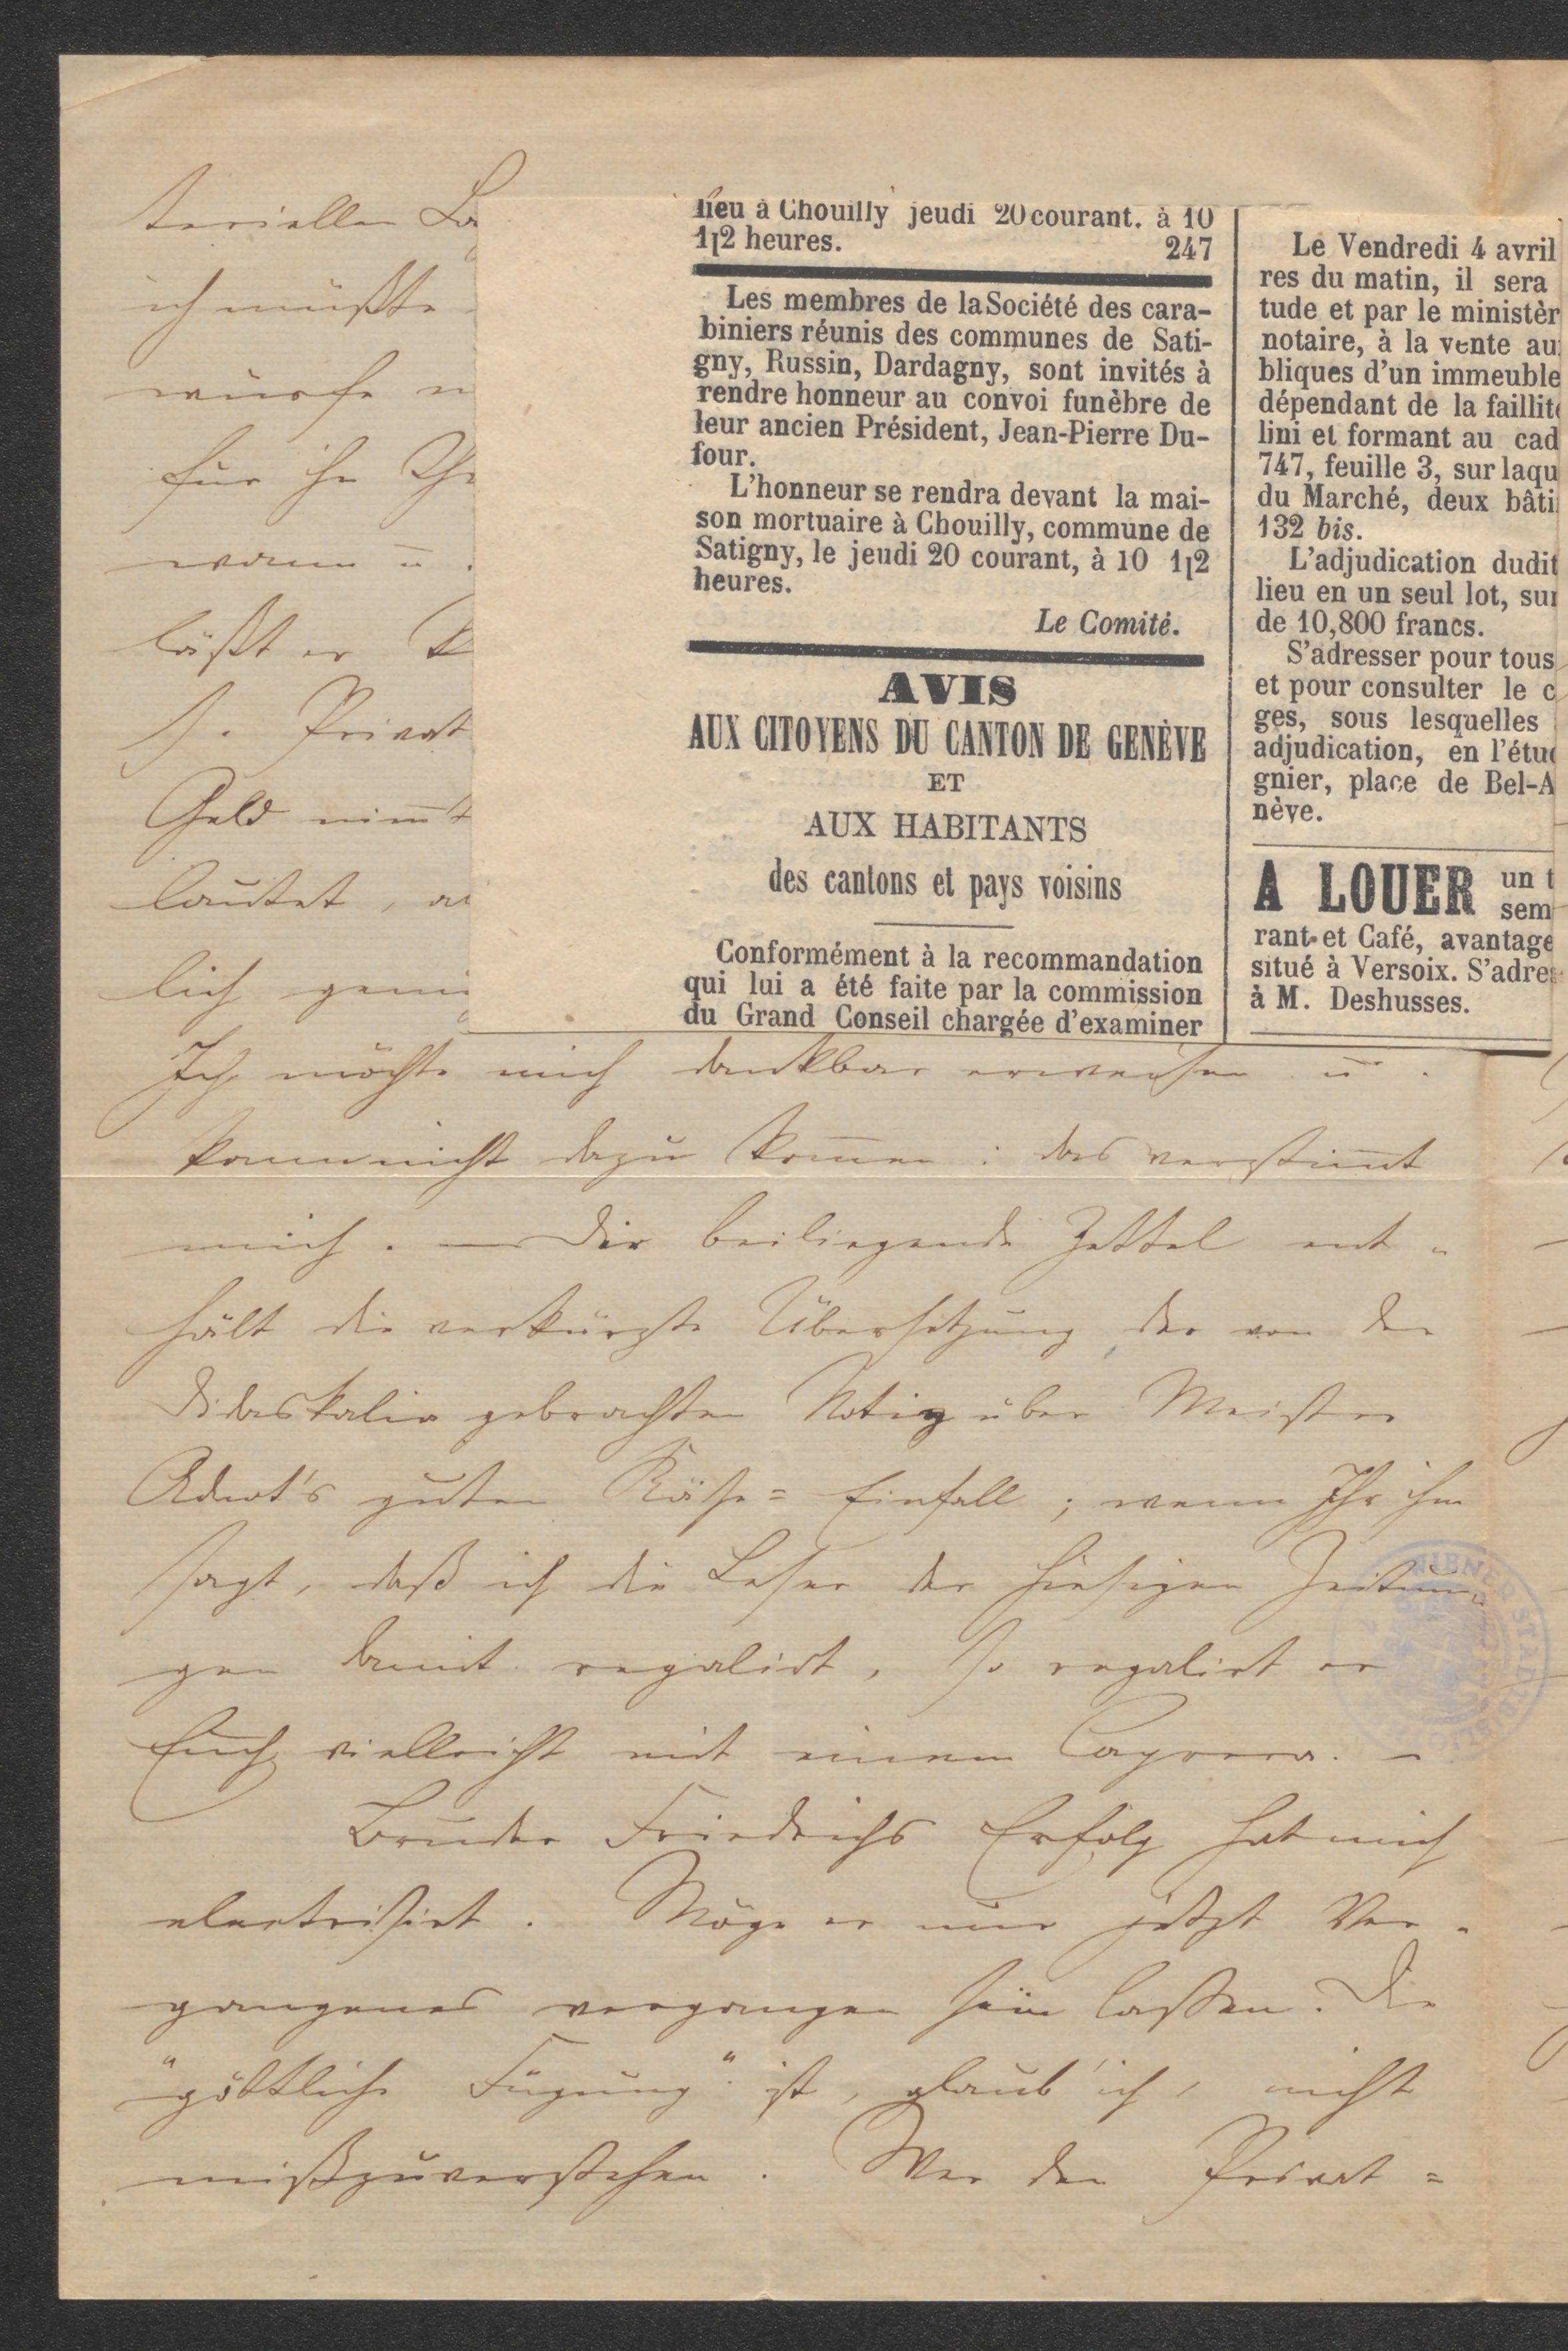 teriellen
ich müßte
würfe
für ihr
wann u.
läßt er
s. Privat
Geld nim̄t
lautet,
lich
lieu à Chouilly jeudi 20 courant. à 10
1|2 heures. 247
Les membres de la Société des cara-
biniers réunis des communes de Sati-
gny, Russin, Dardagny, sont invités à
rendre honneur au convoi funèbre de
leur ancien Président, Jean-Pierre Du-
four.
L'honneur se rendra devant la mai-
son mortuaire à Chouilly, commune de
Satigny, le jeudi 20 courant, à 10 1|2
heures.
Le Comité.
AVIS
AUX CITOYENS DU CANTON DE GENÈVE
ET
AUX HABITANTS
des cantons et pays voisins
Conformément à la recommandation
qui lui a été faite par la commission
du Grand Conseil chargée d'examiner
Le Vendredi 4 avril
res du matin, il sera
tude et par le ministèr
notaire, à la vente au
bliques d'un immeuble
dépendant de la faillit
lini et formant au cad
747, feuille 3, sur laqu
du Marché, deux bâti
132 bis.
L'adjudication dudit
lieu en un seul lot, su
de 10,800 francs.
S'adresser pour tous
et pour consulter le c
ges, sous lesquelles
adjudication, en l'étu
gnier, place de Bel-A
nève.
A LOUER un t
sem
rant et Café, avantage
situé à Versoix. S'adre
à M. Deshusses.
Ich möchte mich dankbar erweisen u.
kann nicht dazu kom̄en: das verstim̄t
mich. — Der beiliegende Zettel ent-
hält die verkürzte Übersetzung der von der
Didaskalia gebrachten Notiz über Meister
guten Käse= Einfall; wenn Ihr ihm
sagt, daß ich die Leser der hiesigen Zeitun-
gen damit regalirt, so regalirt er
Euch vielleicht mit einem —
Bruder Friedrichs Erfolg hat mich
electrisirt. Möge er nur jetzt Ver-
gangenes vergangen sein lassen. Die
"göttliche Fügung" ist, glaub' ich, nicht
mißzuverstehen. Wer den Privat=